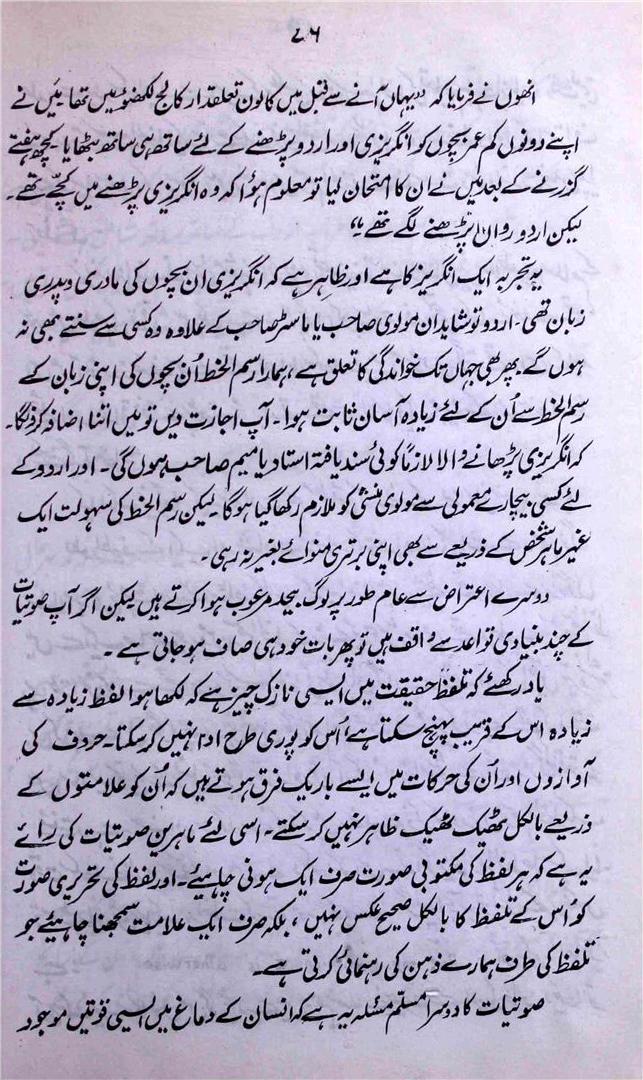 ۷۶
انھوں نے فرمایا کہ "یہاں آنے سے قبل میں کالون تعلقدار کالج لکھنؤ میں تھا میں نے
اپنے دونوں کم عمر بچوں کو انگریزی اور اردو پڑھنے کے لئے ساتھ ہی ساتھ بٹھایا کچھ ہفتے
گزرنے کے بعد میں نے ان کا امتحان لیا تو معلوم ہوا کہ وہ انگریزی پڑھنے میں کچے تھے۔
لیکن اردو رواں پڑھنے لگے تھے"
یہ تجربہ ایک انگریز کا ہے اور ظاہر ہے کہ انگریزی ان بچوں کی مادری و پدری
زبان تھی۔ اردو تو شاید ان مولوی صاحب یا ماسٹر صاحب کے علاوہ وہ کسی سے سنتے بھی نہ
ہوں گے پھر بھی جہاں تک خواندگی کا تعلق ہے، ہمارا رسم الخط اُن بچوں کی اپنی زبان کے
رسم الخط سے اُن کے لئے زیادہ آسان ثابت ہوا۔ آپ اجازت دیں تو میں اتنا اضافہ کر دونگا۔
کہ انگریزی پڑھانے والا لازماً کوئی سند یافتہ استاد یا میم صاحب ہوں گی۔ اور اردو کے
لئے کسی بیچارے معمولی سے مولوی منشی کو ملازم رکھا گیا ہوگا۔ لیکن رسم الخط کی سہولت ایک
غیر ماہر شخص کے ذریعے سے بھی اپنی برتری منوائے بغیر نہ رہی۔
دوسرے اعتراض سے عام طور پر لوگ بیحد مرعوب ہوا کرتے ہیں لیکن اگر آپ صوتیات
کے چند بنیادی قواعد سے واقف ہیں تو پھر بات خود ہی صاف ہو جاتی ہے۔
یاد رکھئے کہ تلفظ حقیقت میں ایسی نازک چیز ہے کہ لکھا ہوا لفظ زیادہ سے
زیادہ اس کے قریب پہنچ سکتا ہے اُس کو پوری طرح ادا نہیں کر سکتا۔ حروف کی
آوازوں اور اُن کی حرکات میں ایسے باریک فرق ہوتے ہیں کہ اُن کو علامتوں کے
ذریعے بالکل ٹھیک ٹھیک ظاہر نہیں کر سکتے۔ اسی لئے ماہرین صوتیات کی رائے
یہ ہے کہ ہر لفظ کی مکتوبی صورت صرف ایک ہونی چاہیئے۔ اور لفظ کی تحریری صورت
کو اُس کے تلفظ کا بالکل صحیح عکس نہیں، بلکہ صرف ایک علامت سمجھنا چاہیئے جو
تلفظ کی طرف ہمارے ذہن کی رہنمائی کرتی ہے۔
صوتیات کا دوسرا مسلّم مسئلہ یہ ہے کہ انسان کے دماغ میں ایسی قوتیں موجود